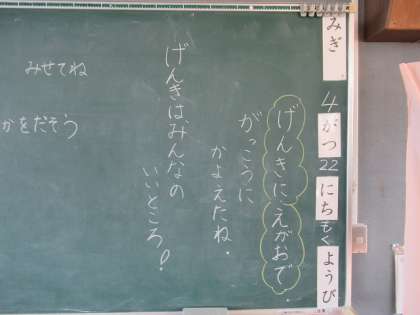 みぎ
4がつ22にちもくようび
げんきにえがおで、
がっこうに
かよえたね。
げんきは、みんなの
いいところ!
みせてね
かをだそう